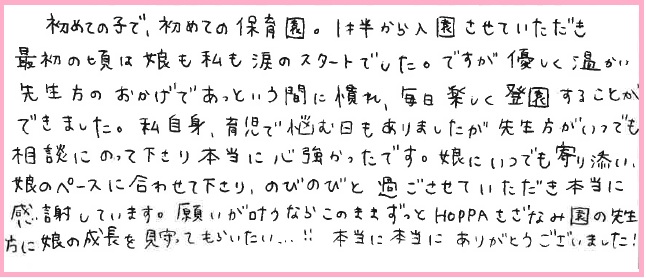 初めての子で、初めての保育園。1才半から入園させていただき
最初の頃は娘も私も涙のスタートでした。ですが優しく温かい
先生方のおかげであっという間に慣れ、毎日楽しく登園することが
できました。私自身、育児で悩む日もありましたが先生方がいつでも
相談にのって下さり本当に心強かったです。娘にいつでも寄り添い、
娘のペースに合わせて下さり、のびのびと過ごさせていただき本当に
感謝しています。願いが叶うならこのままずっとHOPPAさざなみ園の先生
方に娘の成長を見守ってもらいたい…!! 本当に本当にありがとうございました!